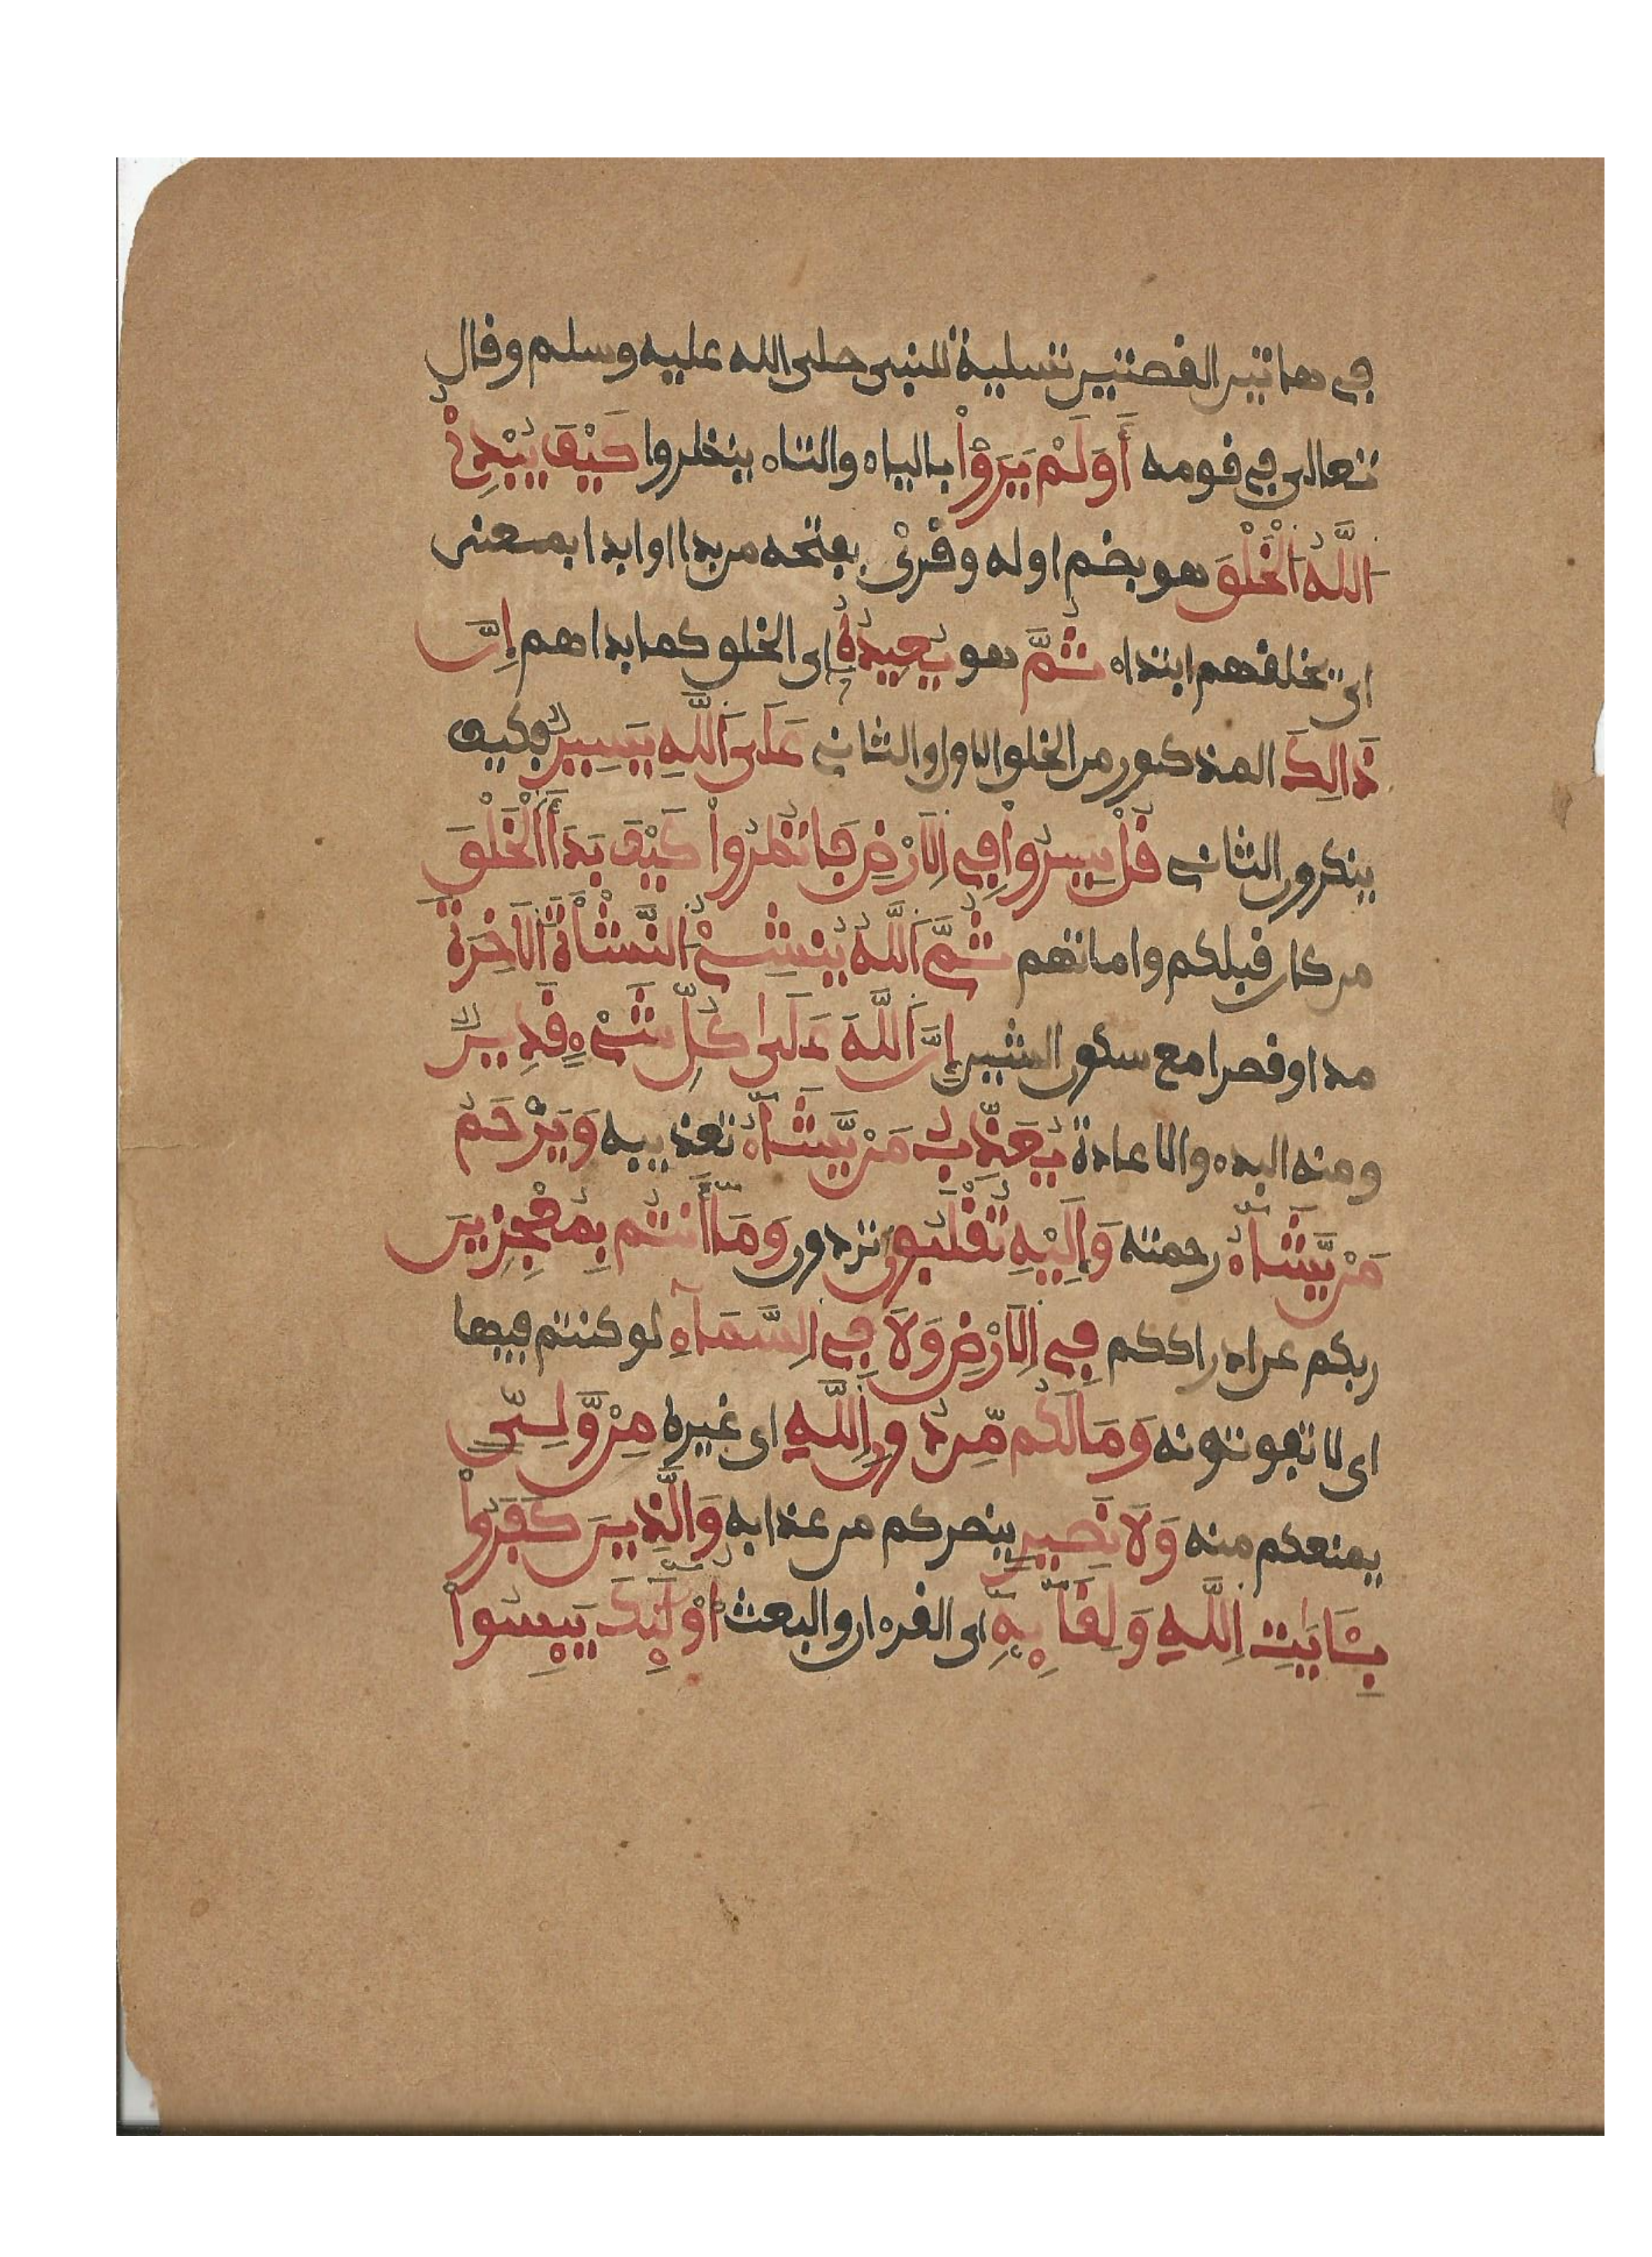 في هاتين القصتين تسلية للنبي صلى الله عليه وسلم وقال
تعالى في قومه أَوَلَمْ يَرَوْا بالياء والتاء ينظروا كَيْفَ يُبْدِئُ
اللَّهُ الْخَلْقَ هو بضم اوله وقرئ بفتحه من بدا وابدا بمعنى
اي يخلقهم ابتداء ثُمَّ هو يُعِيدُهُ اي الخلق كما بداهم إِنَّ
ذَالِكَ المذكور من الخلق الاول والثاني عَلَى اللَّهِ يَسِيرٌ فكيف
ينكرون الثاني قُلْ سِيرُوا فِي الَارْضِ فَانظُرُوا كَيْفَ بَدَأَ الْخَلْقَ
من كان قبلكم واماتهم ثُمَّ اللَّهُ يُنشِئُ النَّشْأَةَ الَاخِرَةَ
مدا وقصرا مع سكون الشين إِنَّ اللَّهَ عَلَى كُلِّ شَيْءٍ قَدِيرٌ
ومنه البدء والاعادة يُعَذِّبُ مَنْ يَّشَاءُ تعذيبه وَيَرْحَمُ
مَنْ يَّشَاءُ رحمته وَإِلَيْهِ تُقْلَبُونَ تردون وَمَا أَنتُم بِمُعْجِزِينَ
ربكم عن ادراككم فِي الَارْضِ وَلَا فِي السَّمَاءِ لو كنتم فيها
اي لا تفوتونه وَمَا لَكُم مِّن دُونِ اللَّهِ اي غيره مِنْ وَّلِيٍّ
يمنعكم منه وَلَا نَصِيرٍ ينصركم من عذابه وَالَّذِينَ كَفَرُوا
بِـَٔايَٰتِ اللَّهِ وَلِقَائِهِ اي القرءان والبعث أُوْلَئِكَ يَئِسُوا